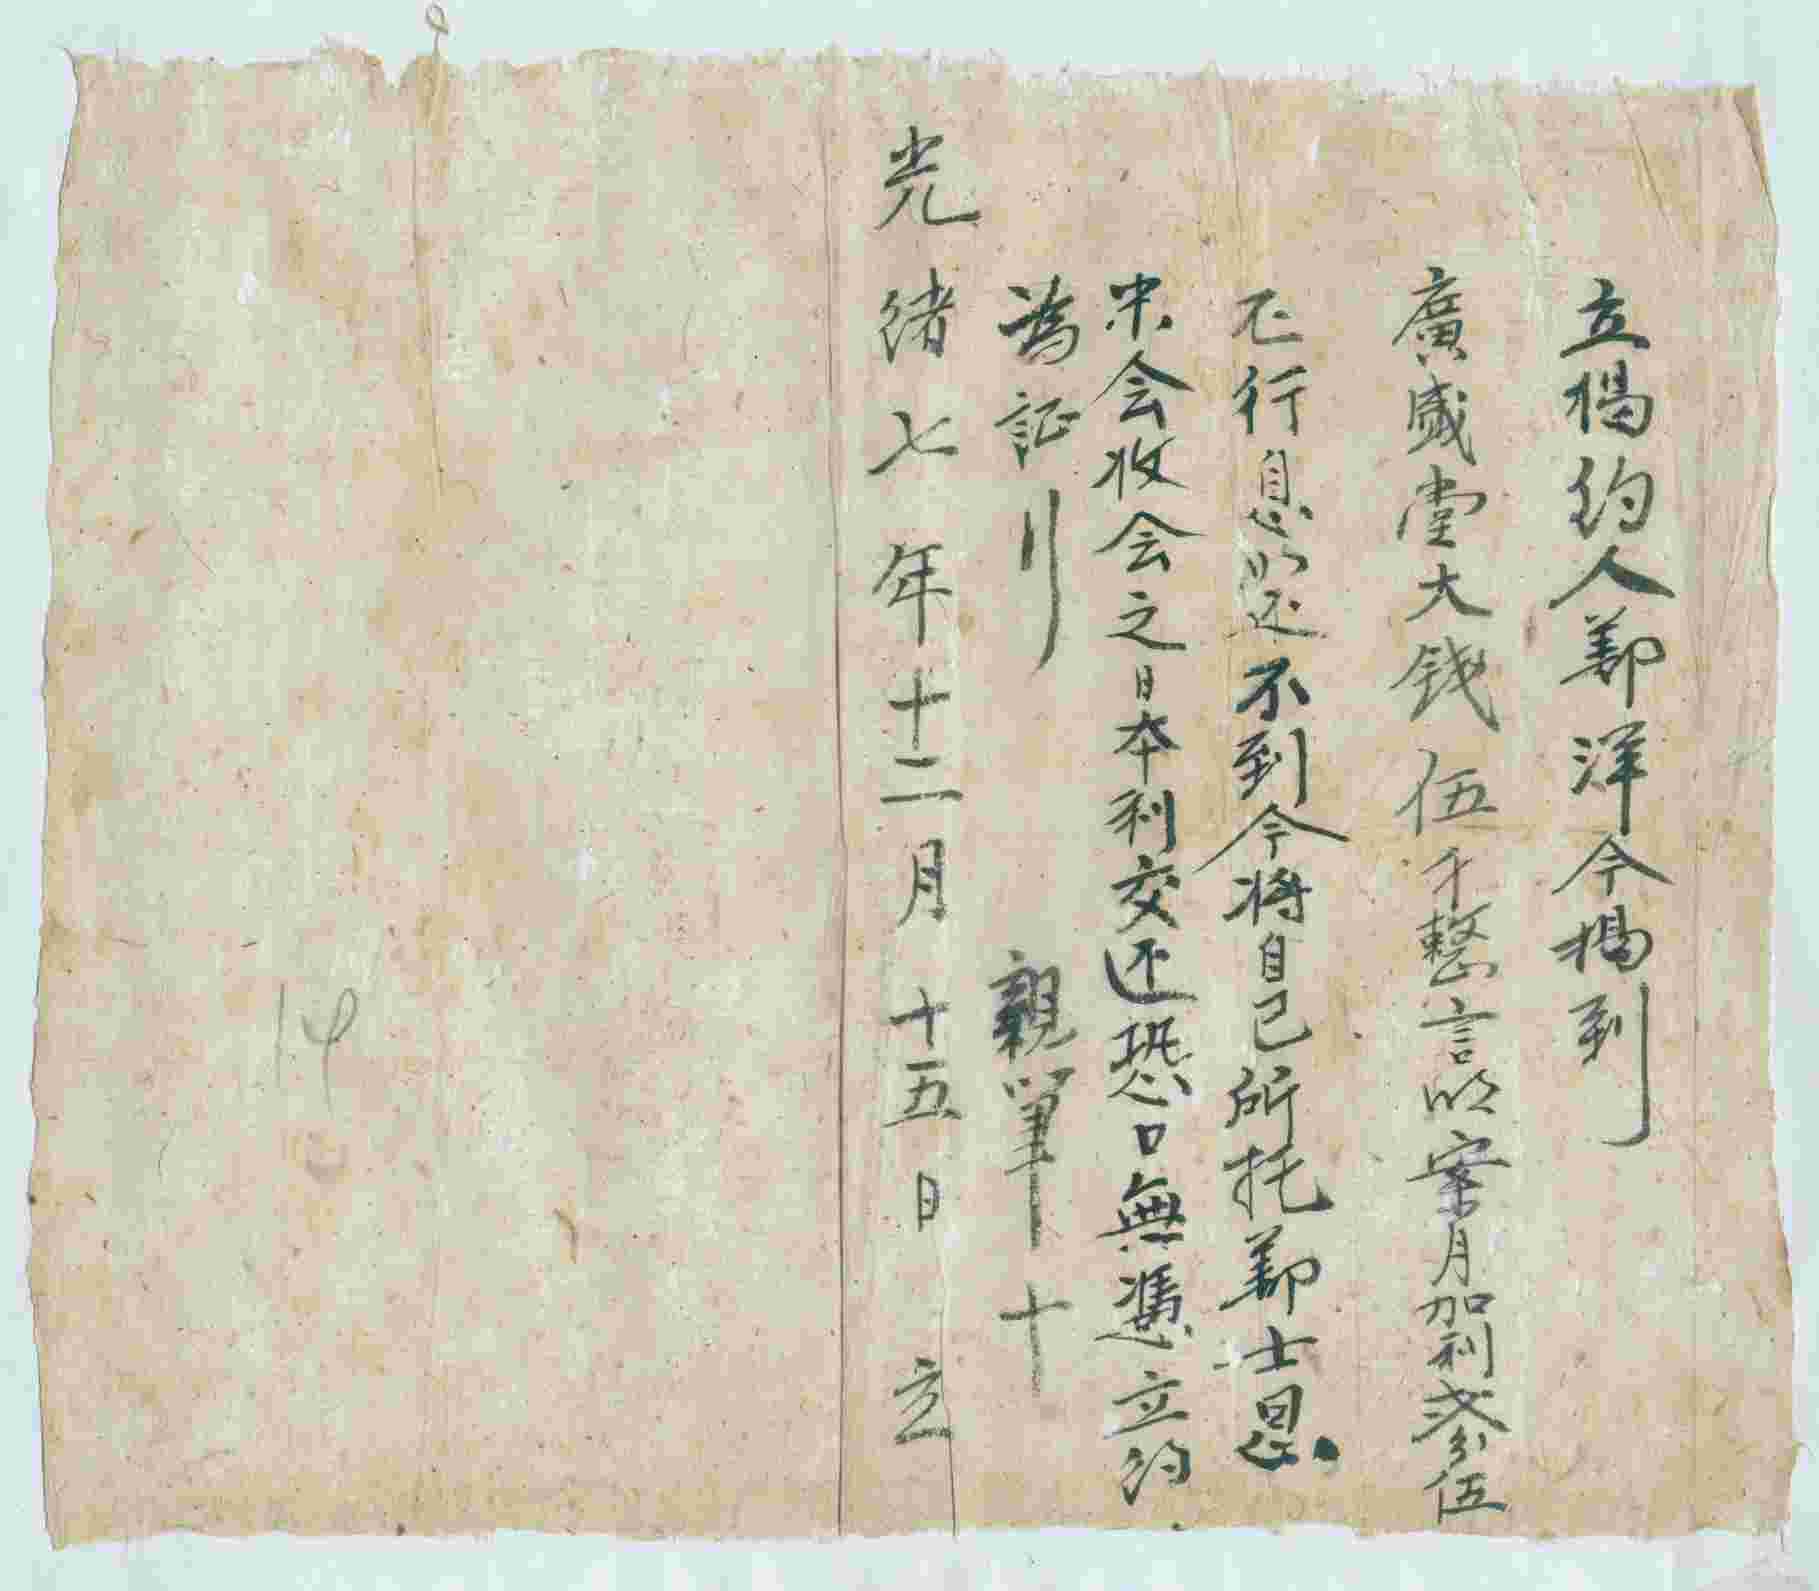 立揭約人鄭洋今揭到
廣盛堂大錢伍千整言明案月加利叁分伍
行息還不到今將自己所托鄭士恩
会收会之日本利交还恐口無憑立約
為証
親筆十
光緒七年十二月十五日立
14